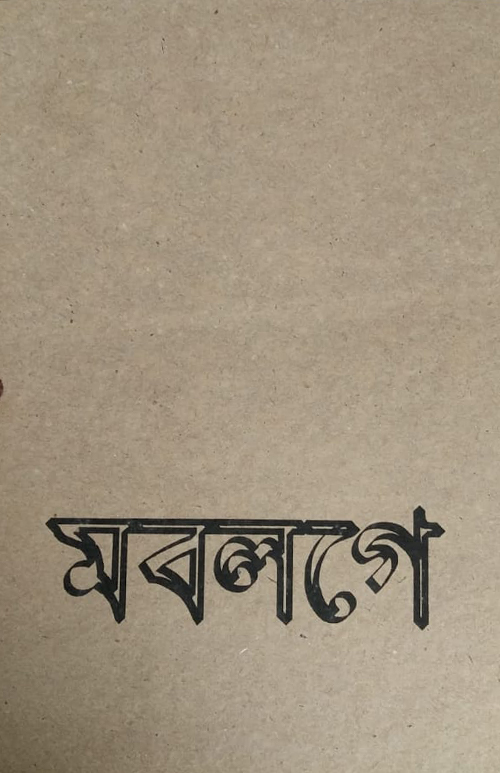 মবলগে